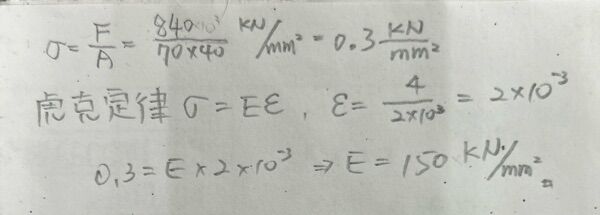 σ = F/A = 840×10³/70×40 KN/mm² = 0.3 KN/mm²
虎克定律 σ = Eε , ε = 4/2×10³ = 2×10⁻³
0.3 = E × 2×10⁻³ ⇒ E = 150 KN/mm²